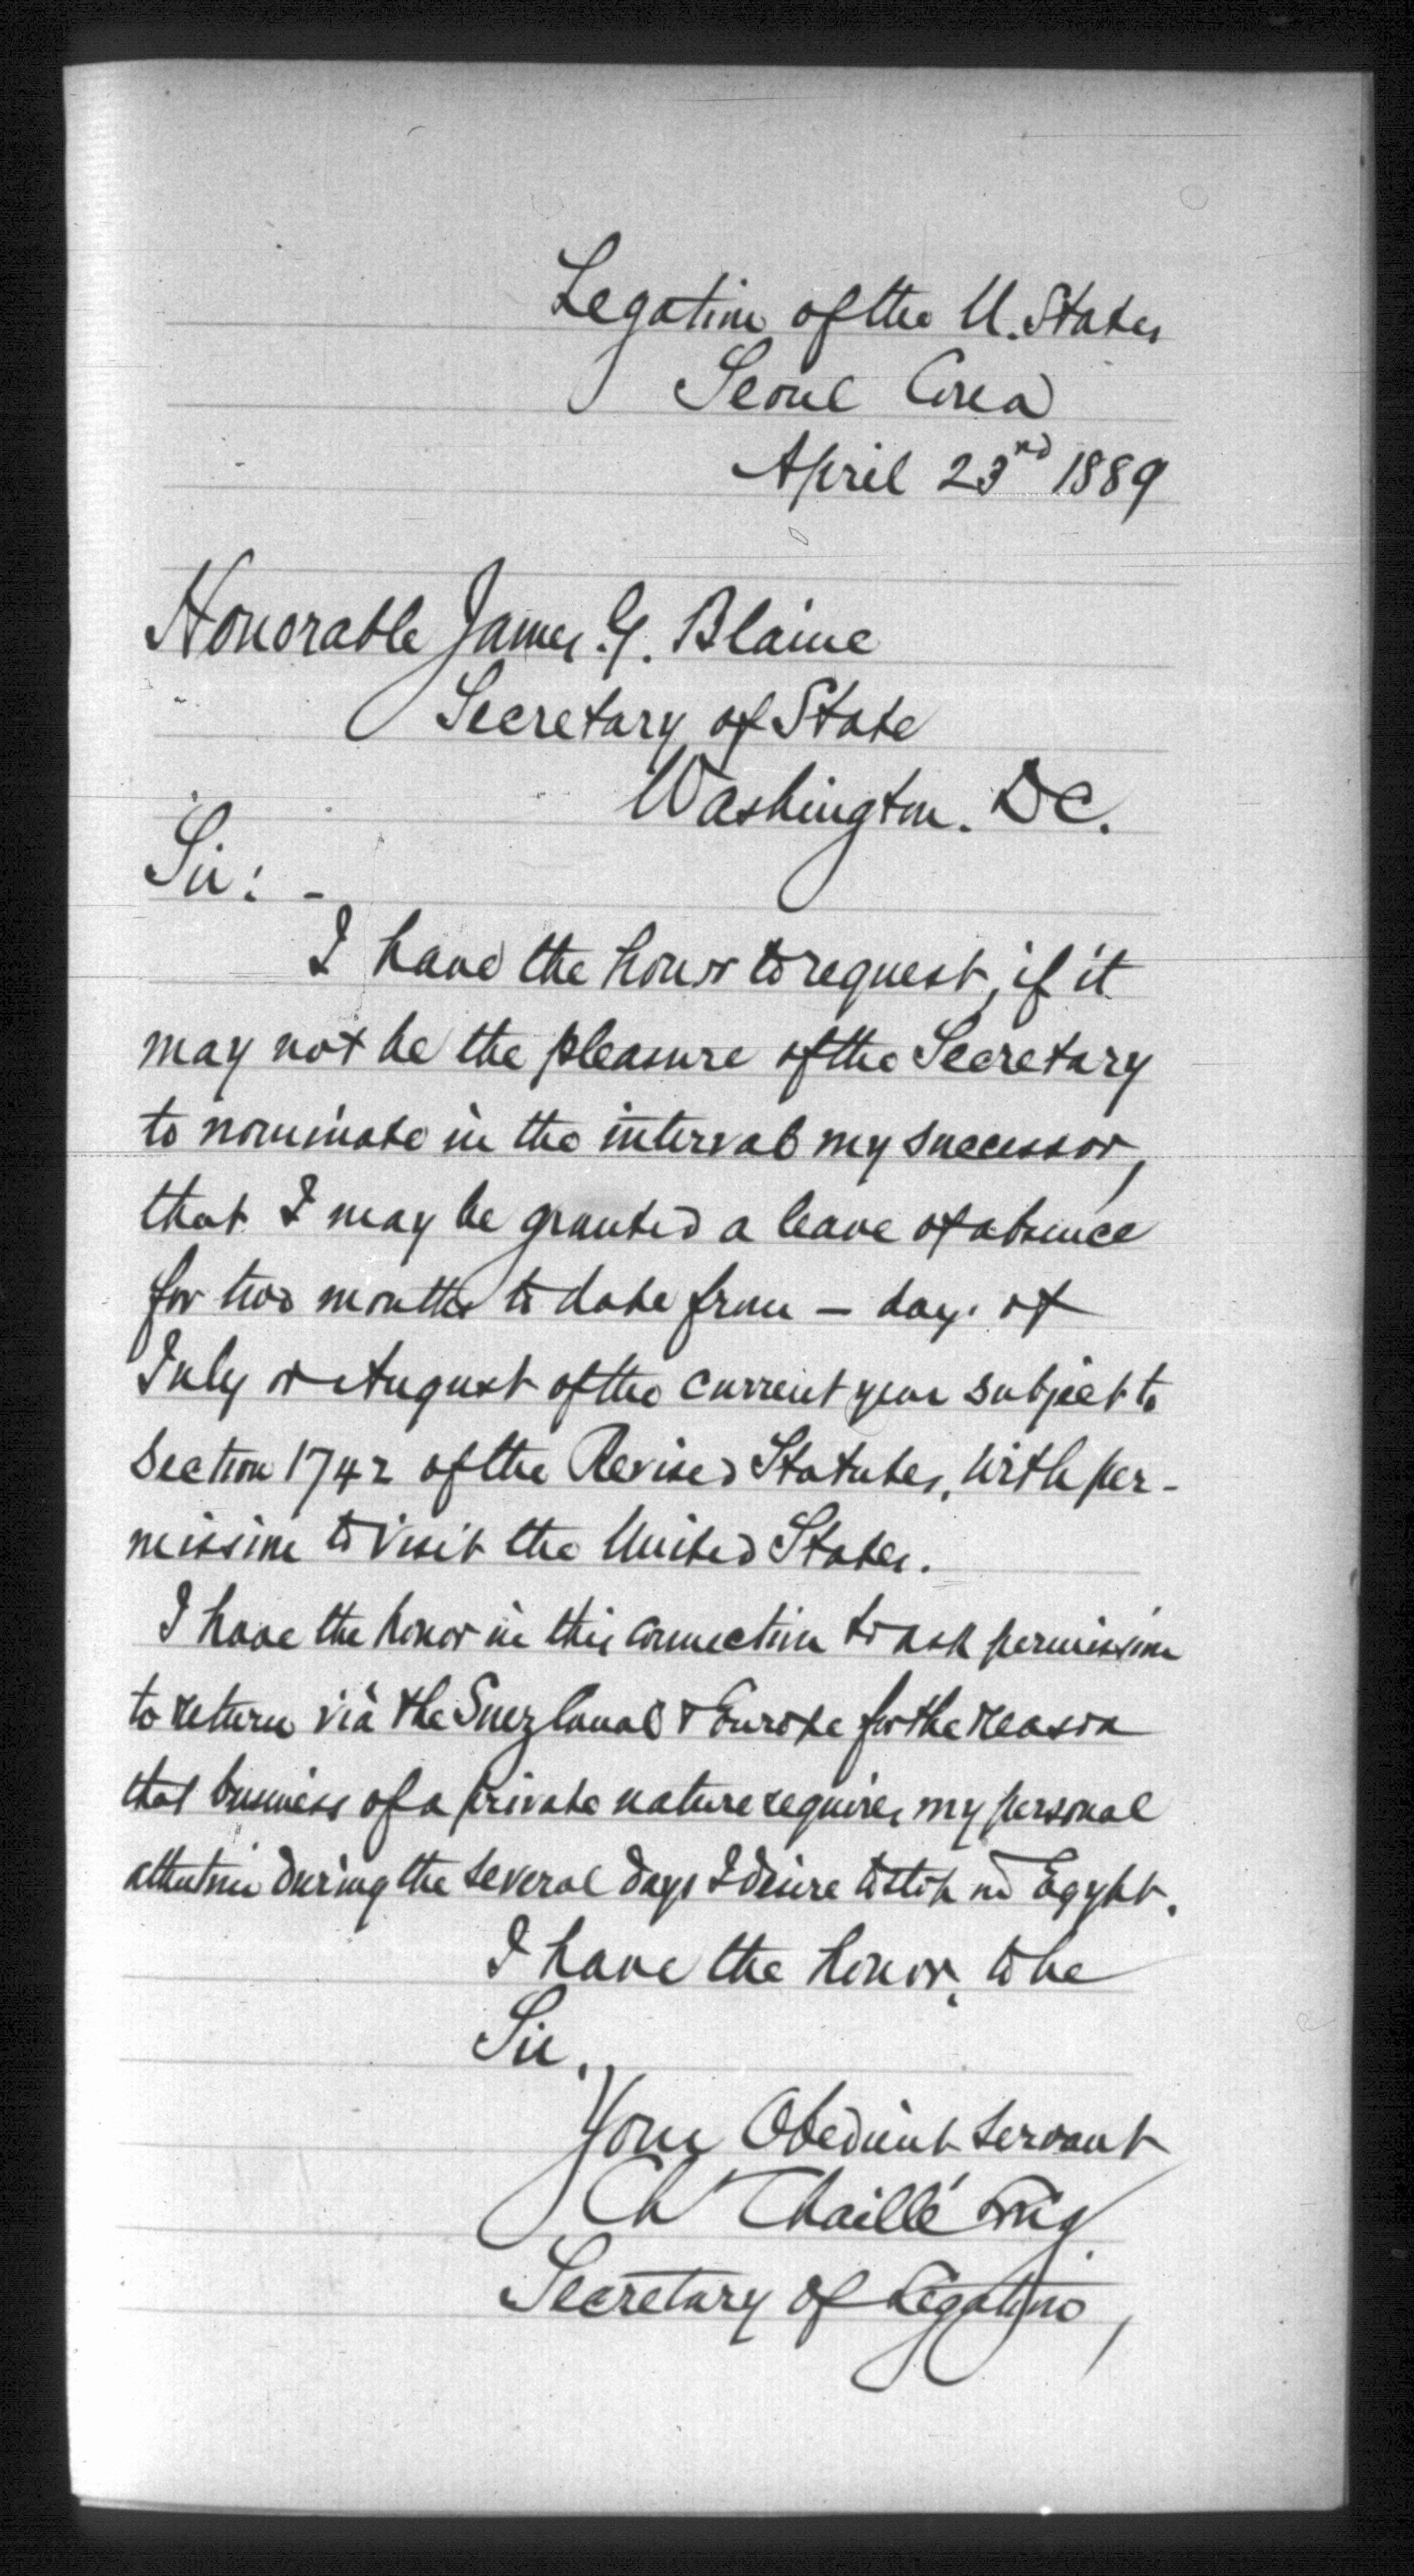 Legation of the U. States
Seoul Corea
April 23rd 1889
Honorable James. G. Blaine
Secretary of State
Washington. DC.
Sir: -
I have the honor to request, if it
may not be the pleasure of the Secretary
to nominate in the interval my successor,
that I may be granted a leave of absence
for two months to date from — day. of
July or August of the current year subject to
Section 1742 of the Revised Statutes, with per-
mission to visit the United States.
I have the honor in this connection to ask permission
to return viâ the Suez Canal & Europe for the reason
that business of a private nature requires my personal
attention during the several days I desire to stop in Egypt.
I have the honor, to be
Sir,
Your Obedient Servant
Ch Chaillé Long
Secretary of Legation,